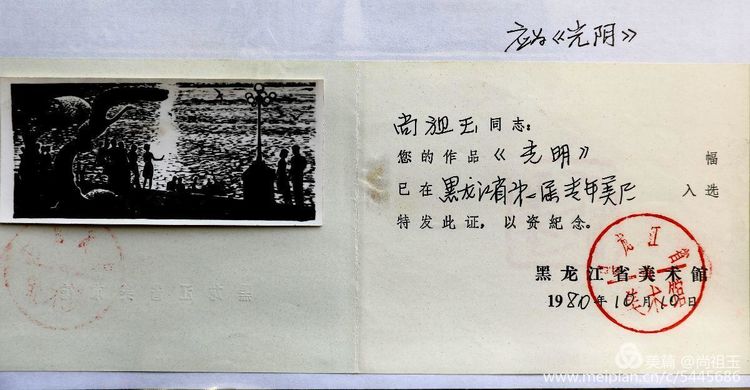 应为《光阴》
尚祖玉同志:
您的作品《光明》 幅
已在黑龙江省第届青年美展 入选
特发此证，以资紀念。
黑龙江省美术館
1980年10月10日
龙江省
美术館
美篇 @尚祖玉
www.meipian.cn/c/5445686